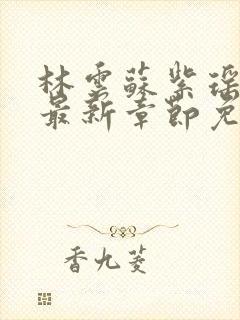 林雲蘇紫瑶
最新章節免
香九菱